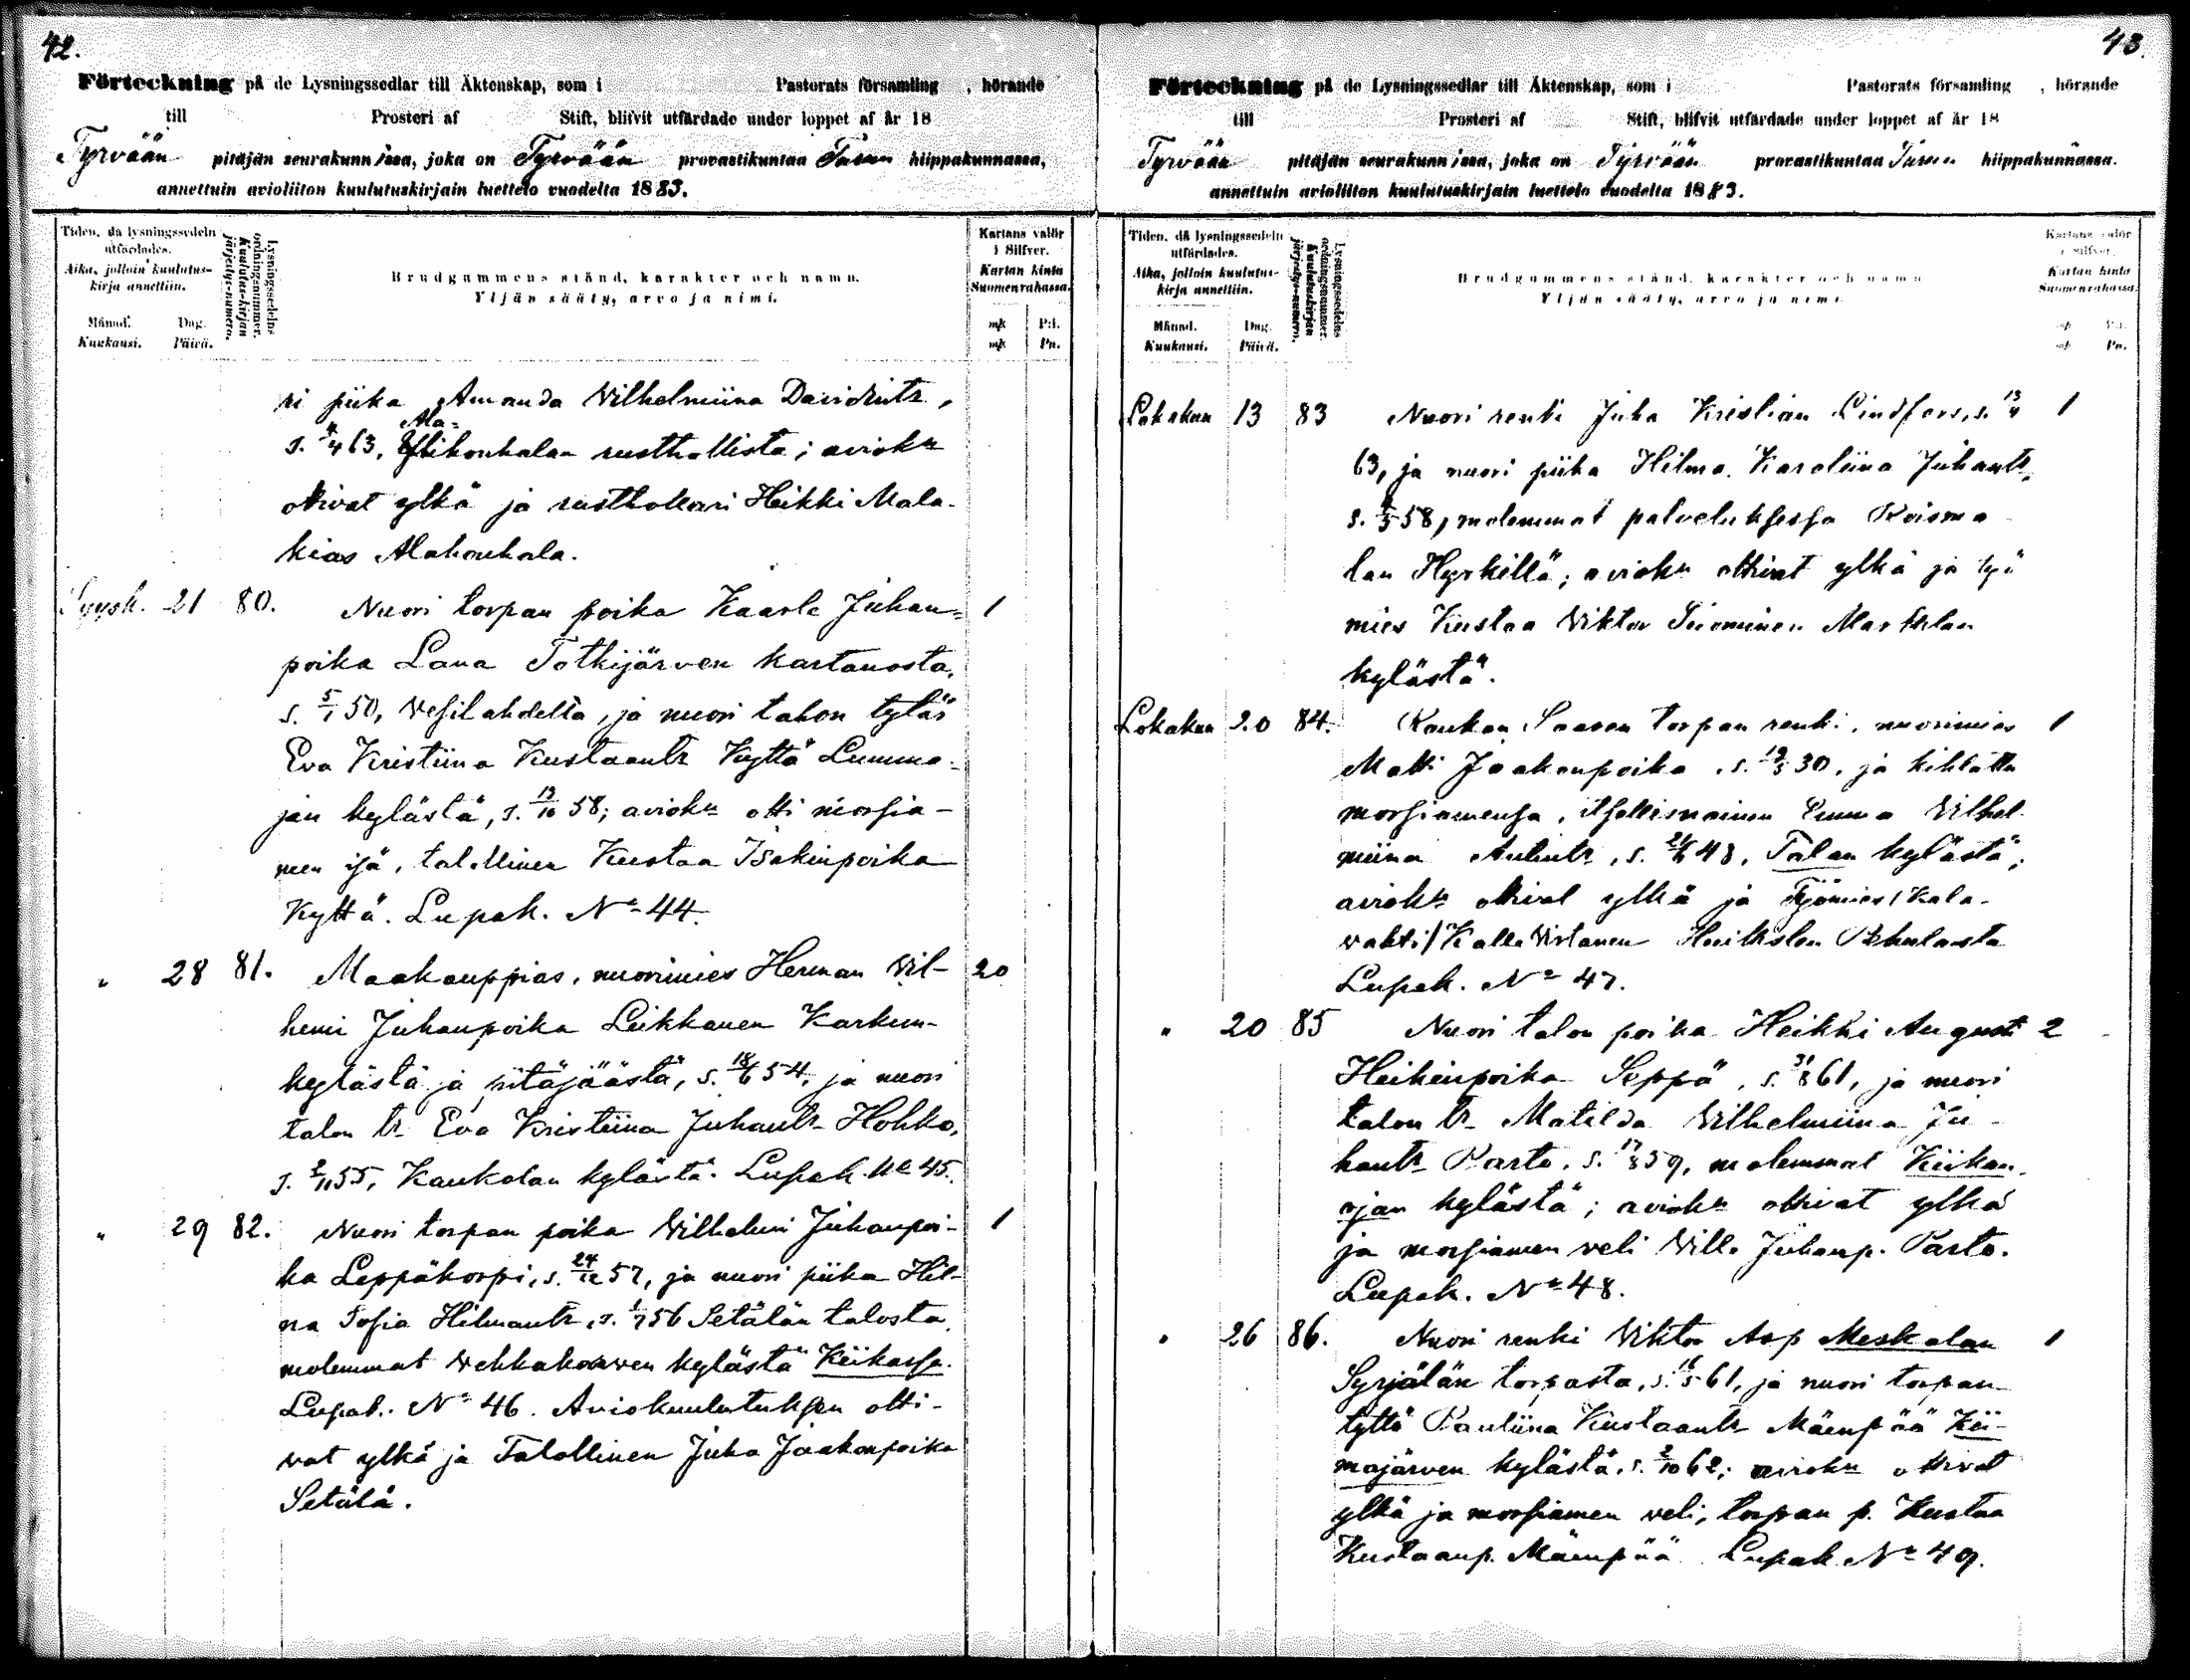 42.
Förteckning på de Lysningssedlar till Äktenskap, som i Pastorats församling , hörande
till Prosteri af Stift, blifvit utfärdade under loppet af år 18
Tyrvään pitäjän seurakunnissa, joka on Tyrvään provastikuntaa Turun hiippakunnassa,
annettuin avioliiton kuulutuskirjain luettelo vuodelta 1883.
Tiden, då lysningssedeln utfärdades.
Aika, jolloin kuulutus-kirja annettiin.
Månad. Dag.
Kuukausi. Päivä.
Lysningssedelns ordningsnummer.
Kuulutus-kirjan järjestys-numero.
Brudgummens stånd, karakter och namn.
Yljän sääty, arvo ja nimi.
Kartans valör i Silfver.
Kartan hinta Suomenrahassa.
mk P:i.
mk Pn.
ri piika Amanda Vilhelmiina Davidintr,
Ala-
s. 4/4 63, honkalan rusthollista; aviokn
ottivat ylkä ja rusthollari Heikki Mala-
kias Alahonkala.
Syysk. 21 80. Nuori torpan poika Kaarle Juhan= 1
poika Lana Totkijärven kartanosta,
s. 5/1 50, Vesilahdelta, ja nuori talon tytär
Eva Kristiina Kustaantr Kyttä Lumma-
jan kylästä, s. 13/10 58; aviokn otti morsia-
men isä, talollinen Kustaa Isakinpoika
Kyttä. Lupak. No 44.
" 28 81. Maakauppias, nuorimies Herman Vil- 20
hemi Juhanpoika Leikkanen Karkun-
kylästä ja pitäjäästä, s. 18/6 54, ja nuori
talon tr Eva Kristiina Juhantr Hohko,
s. 2/11 55, Kaukolan kylästä. Lupak. No 45.
" 29 82. Nuori torpan poika Vilhelmi Juhanpoi- 1
ka Leppäkorpi, s. 24/12 57, ja nuori piika Hil-
na Sofia Hilmantr, s. 1/7 56 Setälän talosta,
molemmat Vehkakorven kylästä Kiikassa.
Lupak. No 46. Aviokuulutuksen otti-
vat ylkä ja Talollinen Juha Jaakonpoika
Setälä.
43.
Förteckning på de Lysningssedlar till Äktenskap, som i Pastorats församling , hörande
till Prosteri af Stift, blifvit utfärdade under loppet af år 18
Tyrvään pitäjän seurakunnissa, joka on Tyrvään provastikuntaa Turun hiippakunnassa.
annettuin avioliiton kuulutuskirjain luettelo vuodelta 1883.
Tiden, då lysningssedeln utfärdades.
Aika, jolloin kuulutus-kirja annettiin.
Månad. Dag.
Kuukausi. Päivä.
Lysningssedelns ordningsnummer.
Kuulutuskirjan järjestys-numero.
Brudgummens stånd, karakter och namn
Yljän sääty, arvo ja nimi.
Kartans valör i Silfver.
Kartan hinta Suomenrahassa.
mk P:i.
mk Pn.
Lokakuu 13 83 Nuori renki Juha Kristian Lindfors, s. 13/4 1
63, ja nuori piika Hilma Karoliina Juhantr,
s. 58, molemmat palveluksessa Roisma
lan Hyrkillä; aviokn ottivat ylkä ja työ
mies Kustaa Viktor Suominen Marttilan
kylästä.
Lokakuu 20 84. Kaukan Saaren torpan renki, nuorimies 1
Matti Jaakonpoika, s. 30, ja kihlattu
morsiamensa, itsellisnainen Emma Vilhel-
miina Antintr, s. 48, Talan kylästä;
aviokn ottivat ylkä ja Työmies/Kala-
vahti/Kalle Virtanen
Lupak. No 47.
" 20 85 Nuori talon poika Heikki August 2
Heikinpoika Seppä, s. 31/8 61, ja nuori
talon tr Matilda Vilhelmiina Ju-
hantr Parta, s. 17/8 59, molemmat Kiikan-
ojan kylästä; aviokn ottivat ylkä
ja morsiamen veli Ville Juhanp. Parta.
Lupak. No 48.
" 26 86. Nuori renki Viktor Asp Meskalan 1
Syrjälän torpasta, s. 16/5 61, ja nuori torpan
tyttö Pauliina Kustaantr Mäenpää Kii-
majärven kylästä, s. 2/10 62; aviokn ottivat
ylkä ja morsiamen veli, torpan p. Kustaa
Kustaanp. Mäenpää Lupak. No 49.